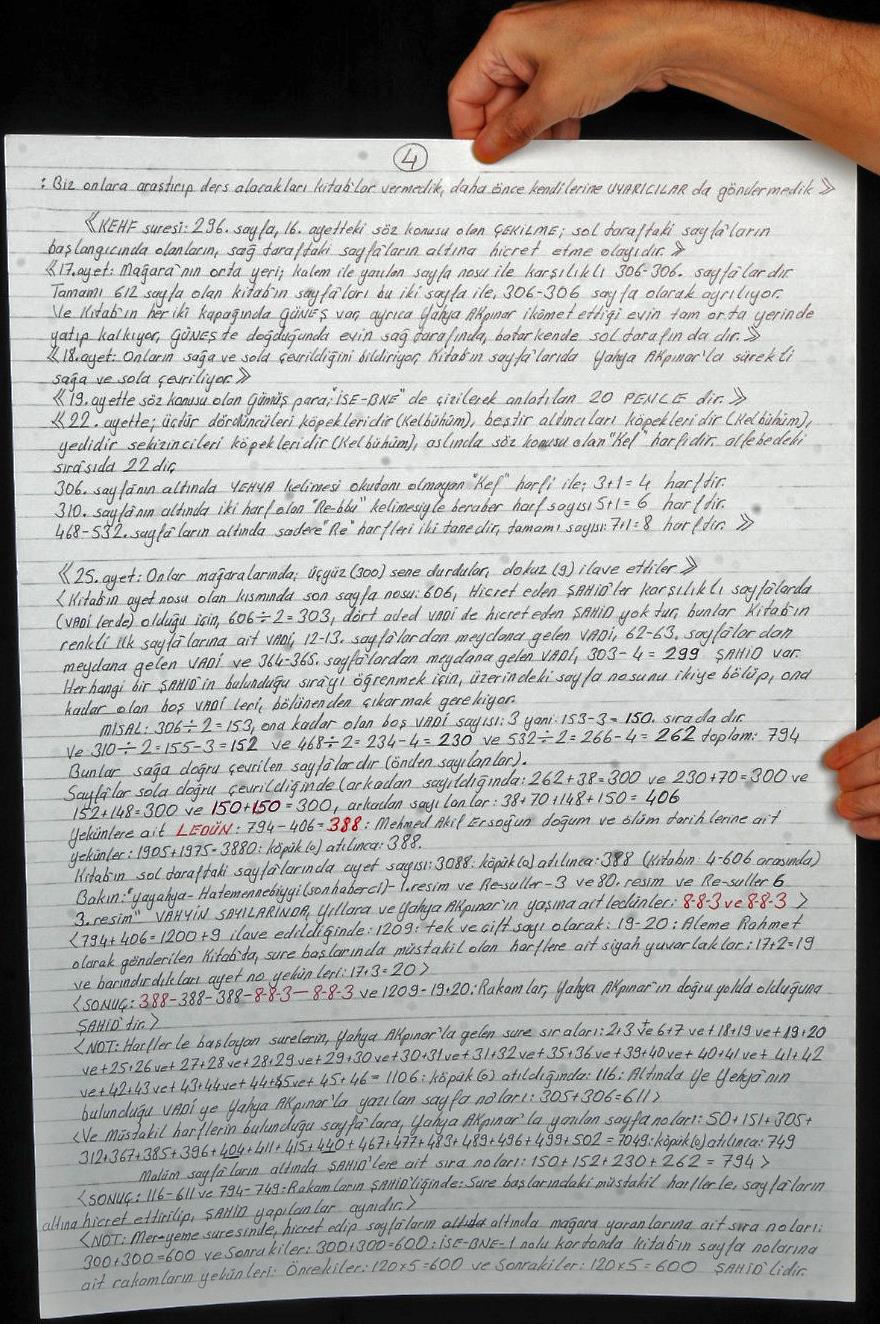 4
: Biz onlara araştırıp ders alacakları kitab'lar vermedik, daha önce kendilerine UYARICILAR da göndermedik 》
《KEHF suresi: 296. sayfa, 16. ayetteki söz konusu olan ÇEKİLME; sol taraftaki sayfâ'ların
başlangıcında olanların, sağ taraftaki sayfâ'ların altına hicret etme olayıdır. 》
《17.ayet: Mağara'nın orta yeri; kalem ile yazılan sayfa nosu ile karşılıklı 306-306. sayfâ'lardır
Tamamı 612 sayfa olan kitab'ın sayfâ'ları bu iki sayfa ile, 306-306 sayfa olarak ayrılıyor.
Ve Kitab'ın her iki kapağında GÜNEŞ var, ayrıca Yahya AKpınar ikâmet ettiği evin tam orta yerinde
yatıp kalkıyor, GÜNEŞ'te doğduğunda evin sağ tarafında, batarkende sol tarafın da dır. 》
《18.ayet: Onların sağa ve sola çevrildiğini bildiriyor, Kitab'ın sayfâ'larıda Yahya AKpınar'la sürekli
sağa ve sola çevriliyor. 》
《19. ayette söz konusu olan Gümüş para; "İSE-BNE" de çizilerek anlatılan 20 PENCE dir. 》
《22. ayette; üçtür dördüncüleri köpekleridir (Kelbühüm), beştir altıncıları köpekleridir (Kelbühüm),
yedidir sekizincileri köpekleridir (Kelbühüm), aslında söz konusu olan "Kef" harfidir. alfebedeki
sırasıda 22 dir,
306. sayfânın altında YEHYA kelimesi okutanı olmayan "Kef" harfi ile; 3+1= 4 harftir.
310. sayfânın altında iki harf olan "Re-bbu" kelimesiyle beraber harf sayısı 5+1= 6 harftir.
468-532. sayfâ'ların altında sadece "Re" harfleri iki tanedir, tamamı sayısı: 7+1= 8 harftir. 》
《25. ayet: Onlar mağaralarında; üçyüz (300) sene durdular, dokuz (9) ilave ettiler 》
<Kitab'ın ayet nosu olan kısmında son sayfa nosu: 606, Hicret eden ŞAHİD'ler karşılıklı sayfâ'larda
(VADİ lerde) olduğu için, 606÷2=303, dört aded VADİ de hicret eden ŞAHİD yok tur, bunlar Kitab'ın
renkli ilk sayfâ'larına ait VADİ, 12-13. sayfâ'lardan meydana gelen VADİ, 62-63. sayfâ'lar dan
meydana gelen VADİ ve 364-365. sayfâ'lardan meydana gelen VADİ, 303-4= 299 ŞAHİD var.
Herhangi bir ŞAHİD'in bulunduğu sıra'yı öğrenmek için, üzerindeki sayfa nosunu ikiye bölüp, ona
kadar olan boş VADİ leri, bölünenden çıkarmak gerekiyor.
MİSAL: 306÷2=153, ona kadar olan boş VADİ sayısı: 3 yani: 153-3= 150. sırada dır.
Ve 310÷2=155-3=152 ve 468÷2=234-4= 230 ve 532÷2=266-4= 262 toplam: 794
Bunlar sağa doğru çevrilen sayfâ'lardır (önden sayılanlar).
Sayfâ'lar sola doğru çevrildiğinde (arkadan sayıldığında: 262+38=300 ve 230+70=300 ve
152+148=300 ve 150+150=300, arkadan sayılanlar: 38+70+148+150= 406
Yekünlere ait LEDÜN: 794-406=388: Mehmed Akif Ersoğun doğum ve ölüm tarihlerine ait
yekünler: 1905+1975=3880: köpük(o) atılınca: 388.
Kitab'ın sol taraftaki sayfâ'larında ayet sayısı: 3088: köpük(o) atılınca: 388 (Kitabın 4-606 arasında)
Bakın: "yayahya-Hatemennebiyyi (sonhaberci)-1.resim ve Re-suller-3 ve 80. resim ve Re-suller 6
3. resim" VAHYİN SAYILARINDA, Yıllara ve Yahya AKpınar'ın yaşına ait ledünler: 8-8-3 ve 8-8-3 >
<794+406=1200+9 ilave edildiğinde: 1209: tek ve çift sayı olarak: 19-20: Aleme Rahmet
olarak gönderilen Kitab'ta, sure başlarında müstakil olan harflere ait siyah yuvarlaklar: 17+2=19
ve barındırdıkları ayet no yekün leri: 17+3=20 >
<SONUÇ: 388-388-388-8-8-3-8-8-3 ve 1209-19+20: Rakamlar, Yahya AKpınar'ın doğru yolda olduğuna
ŞAHİD'tir. >
<NOT: Harfler le başlayan surelerin, Yahya AKpınar'la gelen sure sıraları: 2+3 ve 6+7 ve + 18+19 ve + 19+20
ve+25+26 ve+ 27+28 ve+28+29 ve+29+30 ve+30+31 ve+ 31+32 ve+35+36 ve+39+40 ve+ 40+41 ve+ 41+42
ve+42+43 ve+ 43+44 ve+ 44+45 ve+ 45+46= 1106: köpük(o) atıldığında: 116: Altında Ye Yehya'nın
bulunduğu VADİ ye Yahya AKpınar'la yazılan sayfa noları: 305+306=611>
<Ve Müstakil harflerin bulunduğu sayfâ'lara, Yahya AKpınar'la yazılan sayfa noları: 50+151+305+
312+367+385+396+404+411+415+440+467+477+483+489+496+499+502=7049: köpük(o) atılınca: 749
Malûm sayfâ'ların altında ŞAHİD'lere ait sıra noları: 150+152+230+262=794 >
<SONUÇ: 116-611 ve 794-749: Rakamların ŞAHİD'liğinde: Sure başlarındaki müstakil harflerle, sayfâ'ların
altına hicret ettirilip, ŞAHİD yapılanlar aynıdır. >
<NOT: Mer-yeme suresinde, hicret edip sayfâ'ların altında mağara yaranlarına ait sıra noları:
300+300=600 ve Sonrakiler: 300+300=600: İSE-BNE-1 nolu kartonda kitab'ın sayfa nolarına
ait rakamların yekünleri: Öncekiler: 120x5=600 ve Sonrakiler: 120x5=600 ŞAHİD'lidir.